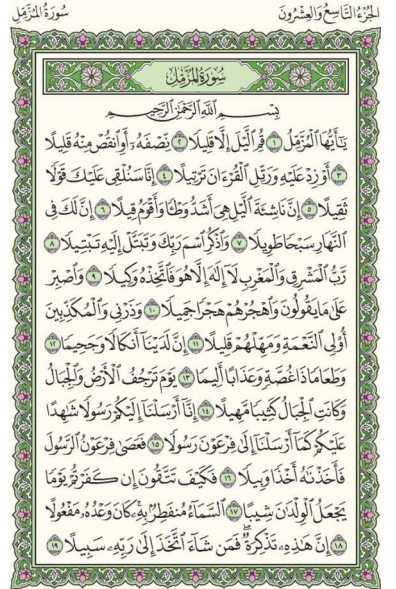 الجزء التاسع والعشرون
سورة المزمل
سُورَةُ المُزَّمِّلِ
بِسْمِ اللَّهِ الرَّحْمَٰنِ الرَّحِيمِ
يَٰٓأَيُّهَا ٱلْمُزَّمِّلُ ١ قُمِ ٱلَّيْلَ إِلَّا قَلِيلًا ٢ نِّصْفَهُۥٓ أَوِ ٱنقُصْ مِنْهُ قَلِيلًا
٣ أَوْ زِدْ عَلَيْهِ وَرَتِّلِ ٱلْقُرْءَانَ تَرْتِيلًا ٤ إِنَّا سَنُلْقِى عَلَيْكَ قَوْلًا
ثَقِيلًا ٥ إِنَّ نَاشِئَةَ ٱلَّيْلِ هِىَ أَشَدُّ وَطْـًٔا وَأَقْوَمُ قِيلًا ٦ إِنَّ لَكَ فِى
ٱلنَّهَارِ سَبْحًا طَوِيلًا ٧ وَٱذْكُرِ ٱسْمَ رَبِّكَ وَتَبَتَّلْ إِلَيْهِ تَبْتِيلًا ٨
رَّبُّ ٱلْمَشْرِقِ وَٱلْمَغْرِبِ لَآ إِلَٰهَ إِلَّا هُوَ فَٱتَّخِذْهُ وَكِيلًا ٩ وَٱصْبِرْ
عَلَىٰ مَا يَقُولُونَ وَٱهْجُرْهُمْ هَجْرًا جَمِيلًا ١٠ وَذَرْنِى وَٱلْمُكَذِّبِينَ
أُو۟لِى ٱلنَّعْمَةِ وَمَهِّلْهُمْ قَلِيلًا ١١ إِنَّ لَدَيْنَآ أَنكَالًا وَجَحِيمًا ١٢
وَطَعَامًا ذَا غُصَّةٍ وَعَذَابًا أَلِيمًا ١٣ يَوْمَ تَرْجُفُ ٱلْأَرْضُ وَٱلْجِبَالُ
وَكَانَتِ ٱلْجِبَالُ كَثِيبًا مَّهِيلًا ١٤ إِنَّآ أَرْسَلْنَآ إِلَيْكُمْ رَسُولًا شَٰهِدًا
عَلَيْكُمْ كَمَآ أَرْسَلْنَآ إِلَىٰ فِرْعَوْنَ رَسُولًا ١٥ فَعَصَىٰ فِرْعَوْنُ ٱلرَّسُولَ
فَأَخَذْنَٰهُ أَخْذًا وَبِيلًا ١٦ فَكَيْفَ تَتَّقُونَ إِن كَفَرْتُمْ يَوْمًا
يَجْعَلُ ٱلْوِلْدَٰنَ شِيبًا ١٧ ٱلسَّمَآءُ مُنفَطِرٌۢ بِهِۦ كَانَ وَعْدُهُۥ مَفْعُولًا
١٨ إِنَّ هَٰذِهِۦ تَذْكِرَةٌ فَمَن شَآءَ ٱتَّخَذَ إِلَىٰ رَبِّهِۦ سَبِيلًا ١٩